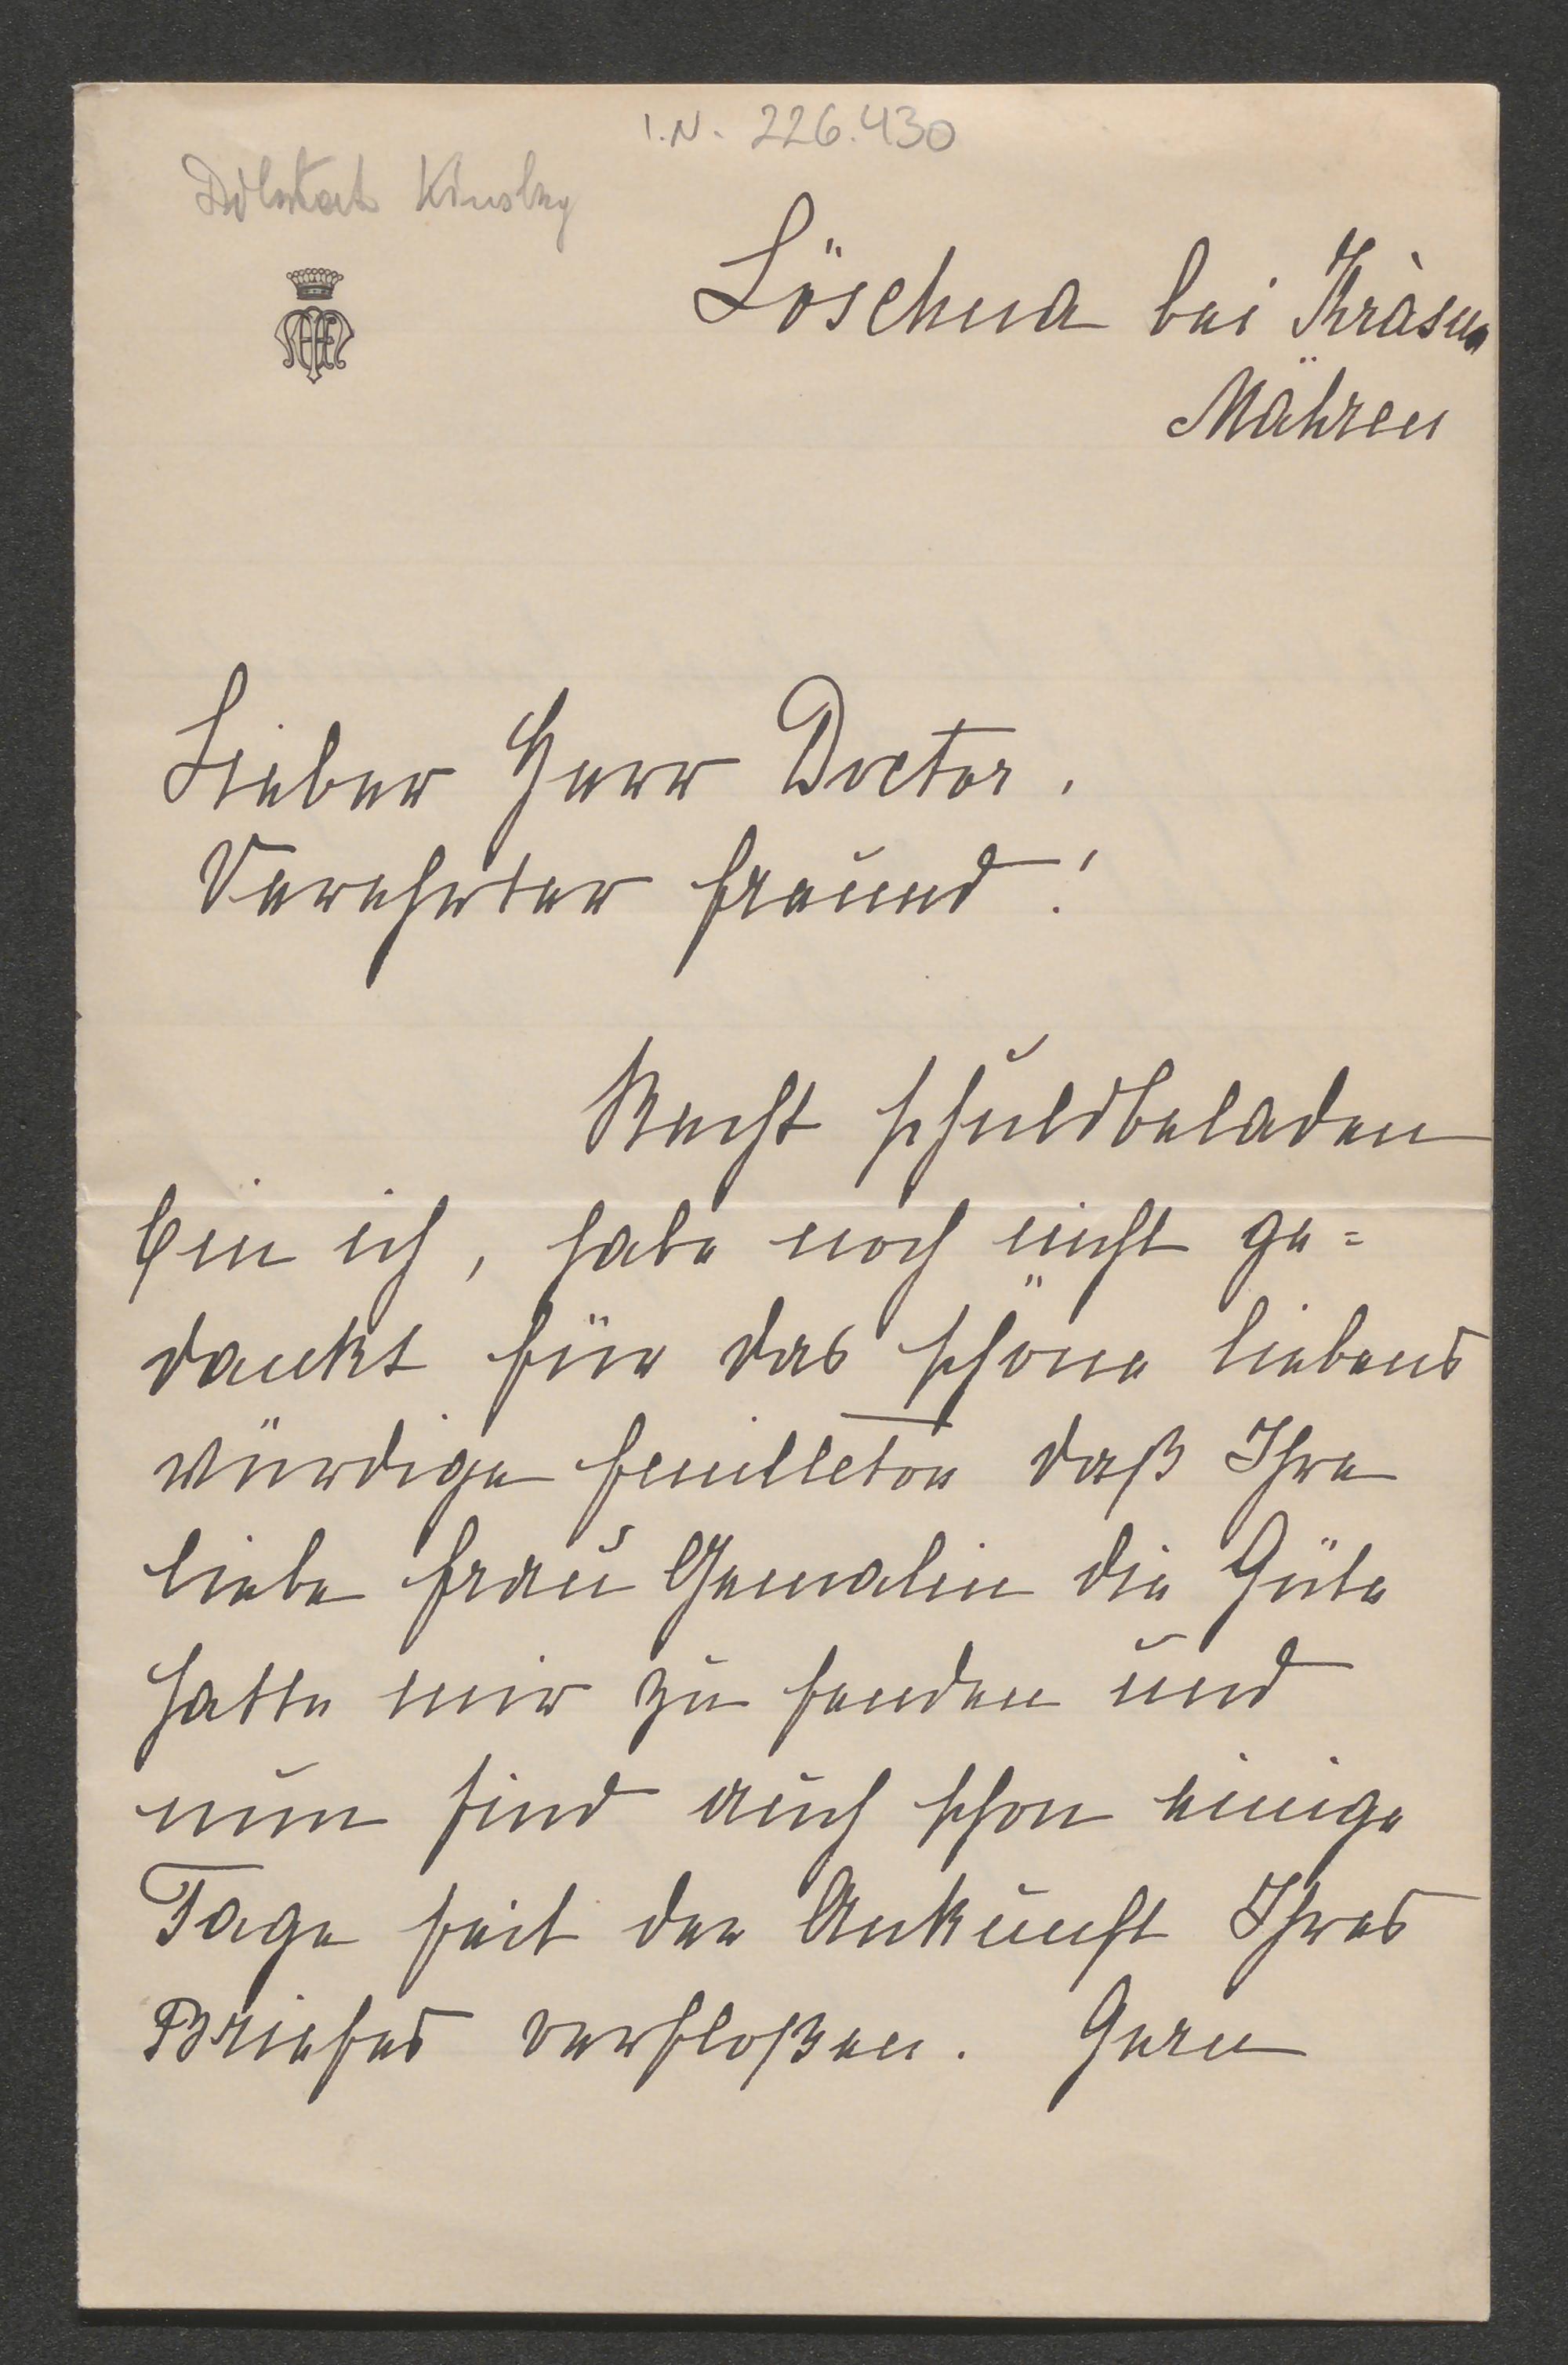 I.N. 226.430
Kinsky
Löschna bei Krásna
Mähren
Lieber Herr Doctor,
Verehrter Freund!
Recht schuldbeladen
bin ich, habe noch nicht ge=
dankt für das schöne liebens
würdige Feuilleton daß Ihre
liebe Frau Gemalin die Güte
hatte mir zu senden und
nun sind auch schon einige
Tage seit der Ankunft Ihres
Briefes verfloßen. Gern